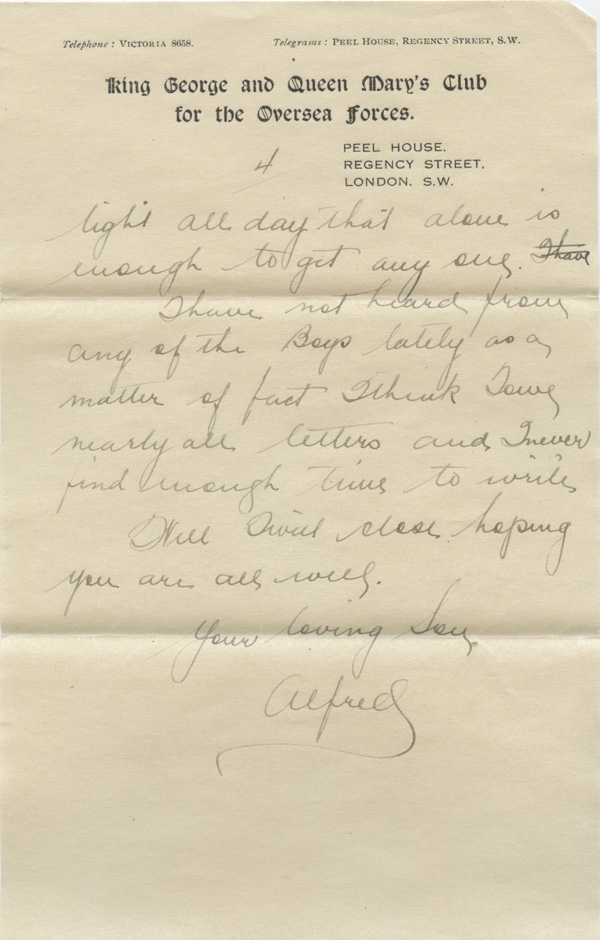 Telephone : VICTORIA 8658. Telegrams : PEEL HOUSE, REGENCY STREET, S.W.
King George and Queen Mary's Club
for the Oversea Forces.
PEEL HOUSE,
REGENCY STREET,
LONDON, S.W.
4
light all day that alone is
enough to get any one. I have
I have not heard from
any of the Boys lately as a
matter of fact I think I owe
nearly all letters and I never
find enough time to write
Well I will close hoping
you are all well.
Your loving Son
Alfred